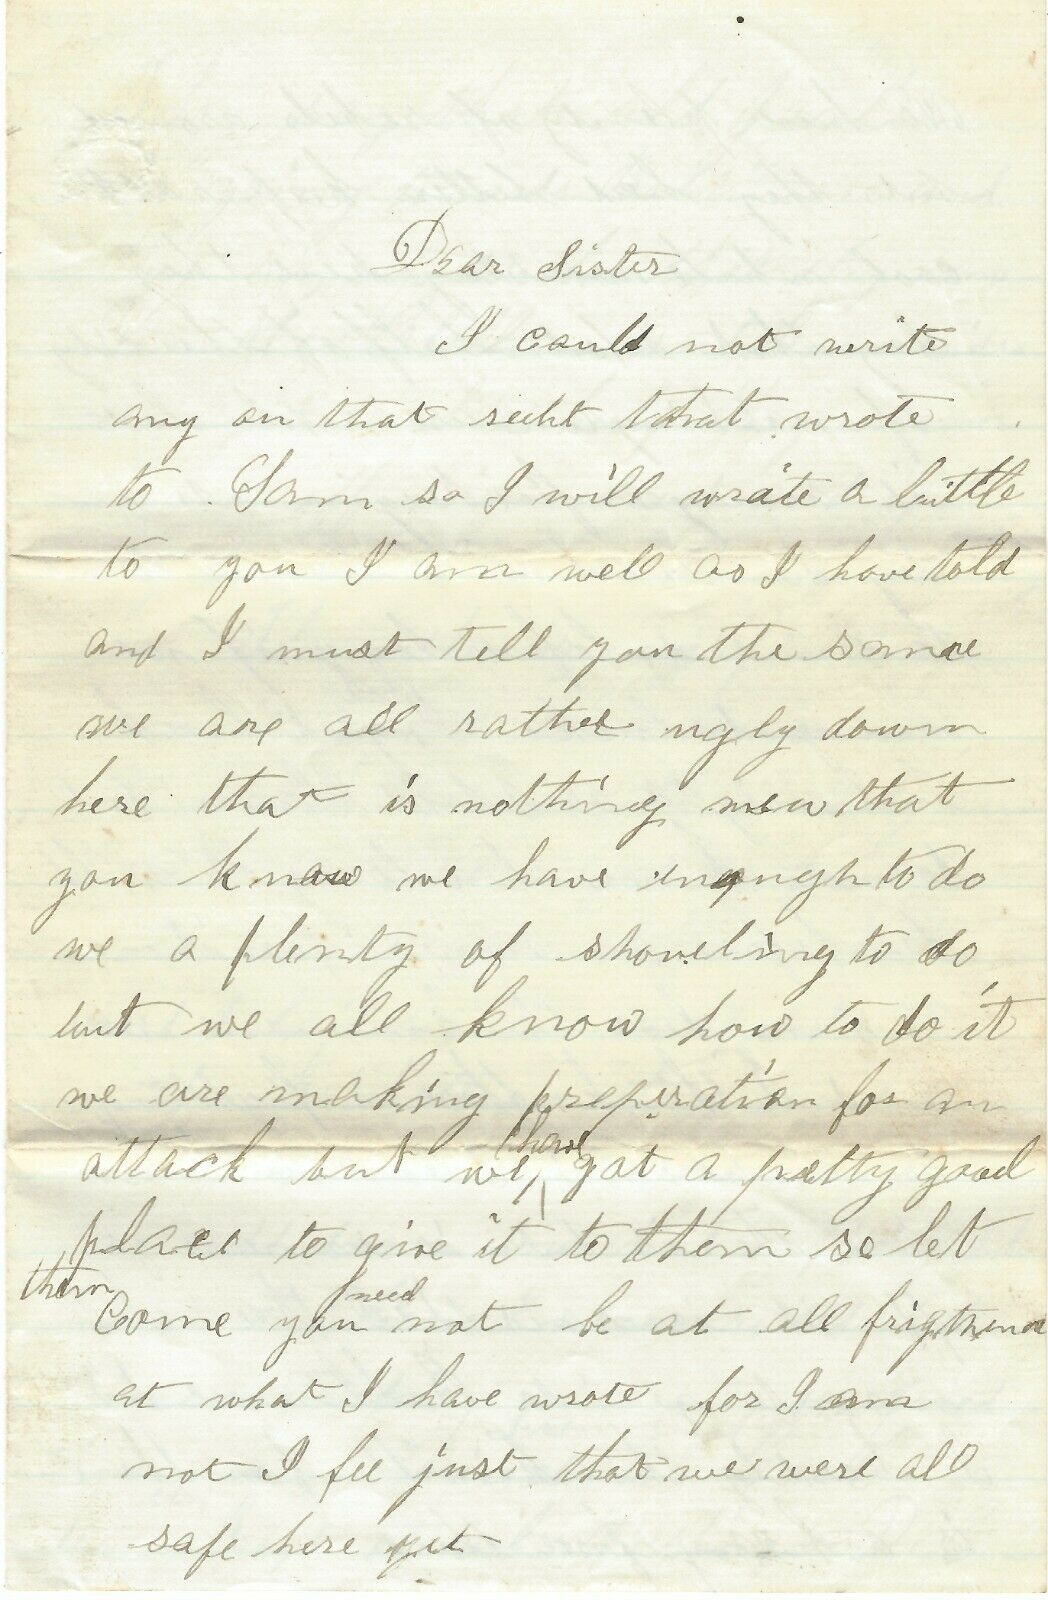 Dear Sister
I could not write
any on that that wrote
to Sam so I will write a little
to you I am well as I have told
and I must tell you the same
we are all rather ugly down
here that is nothing new that
you know we have enough to do
we a plenty of shoveling to do
but we all know how to do it
we are making preperation for an
attack but we have got a pretty good
place to give it to them so let
them come you need not be at all frigthened
at what I have wrote for I am
not I fee just that we were all
safe here yet